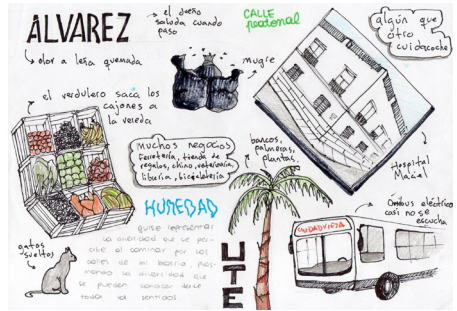 ÁLVAREZ
el dueño
saluda cuando
paso
CALLE
peatonal
algún que
otro
cuidacoche
olor a leña quemada
mugre
el verdulero saca los
cajones a
la vereda
muchos negocios
ferretería, tienda de
regalos, chino, veterinaria,
librería, bicicletería
bancos,
palmeras,
plantas,
Hospital
Maciel
HUMEDAD
Ómnibus eléctrico
casi no se
escucha
CIUDAD VIEJA
gatos
sueltos
quise representar
la diversidad que se per-
cibe al caminar por las
calles de mi barrio, plas-
mando la diversidad que
se pueden conocer desde
todos los sentidos.
UTE